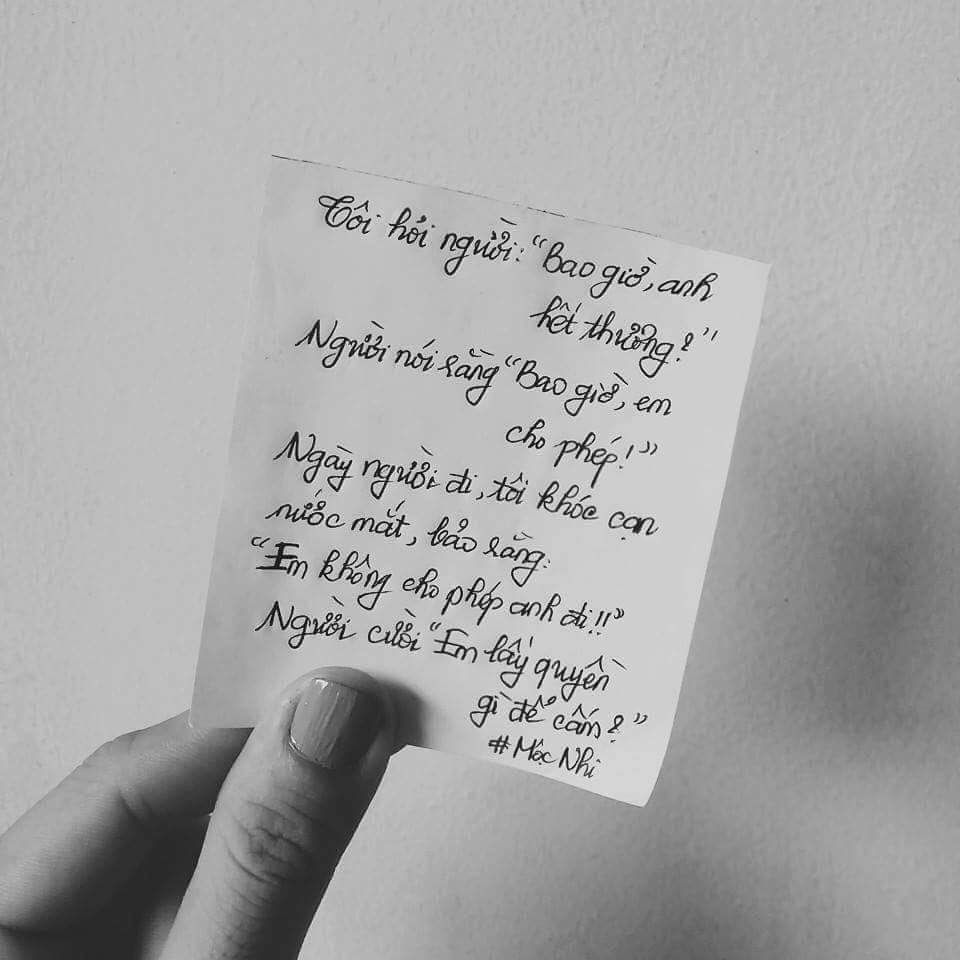 Tôi hỏi người: "Bao giờ, anh
hết thương?"
Người nói rằng "Bao giờ, em
cho phép!"
Ngày người đi, tôi khóc cạn
nước mắt, bảo rằng:
"Em không cho phép anh đi!!"
Người cười "Em lấy quyền
gì để cấm?"
#Mộc Nhi